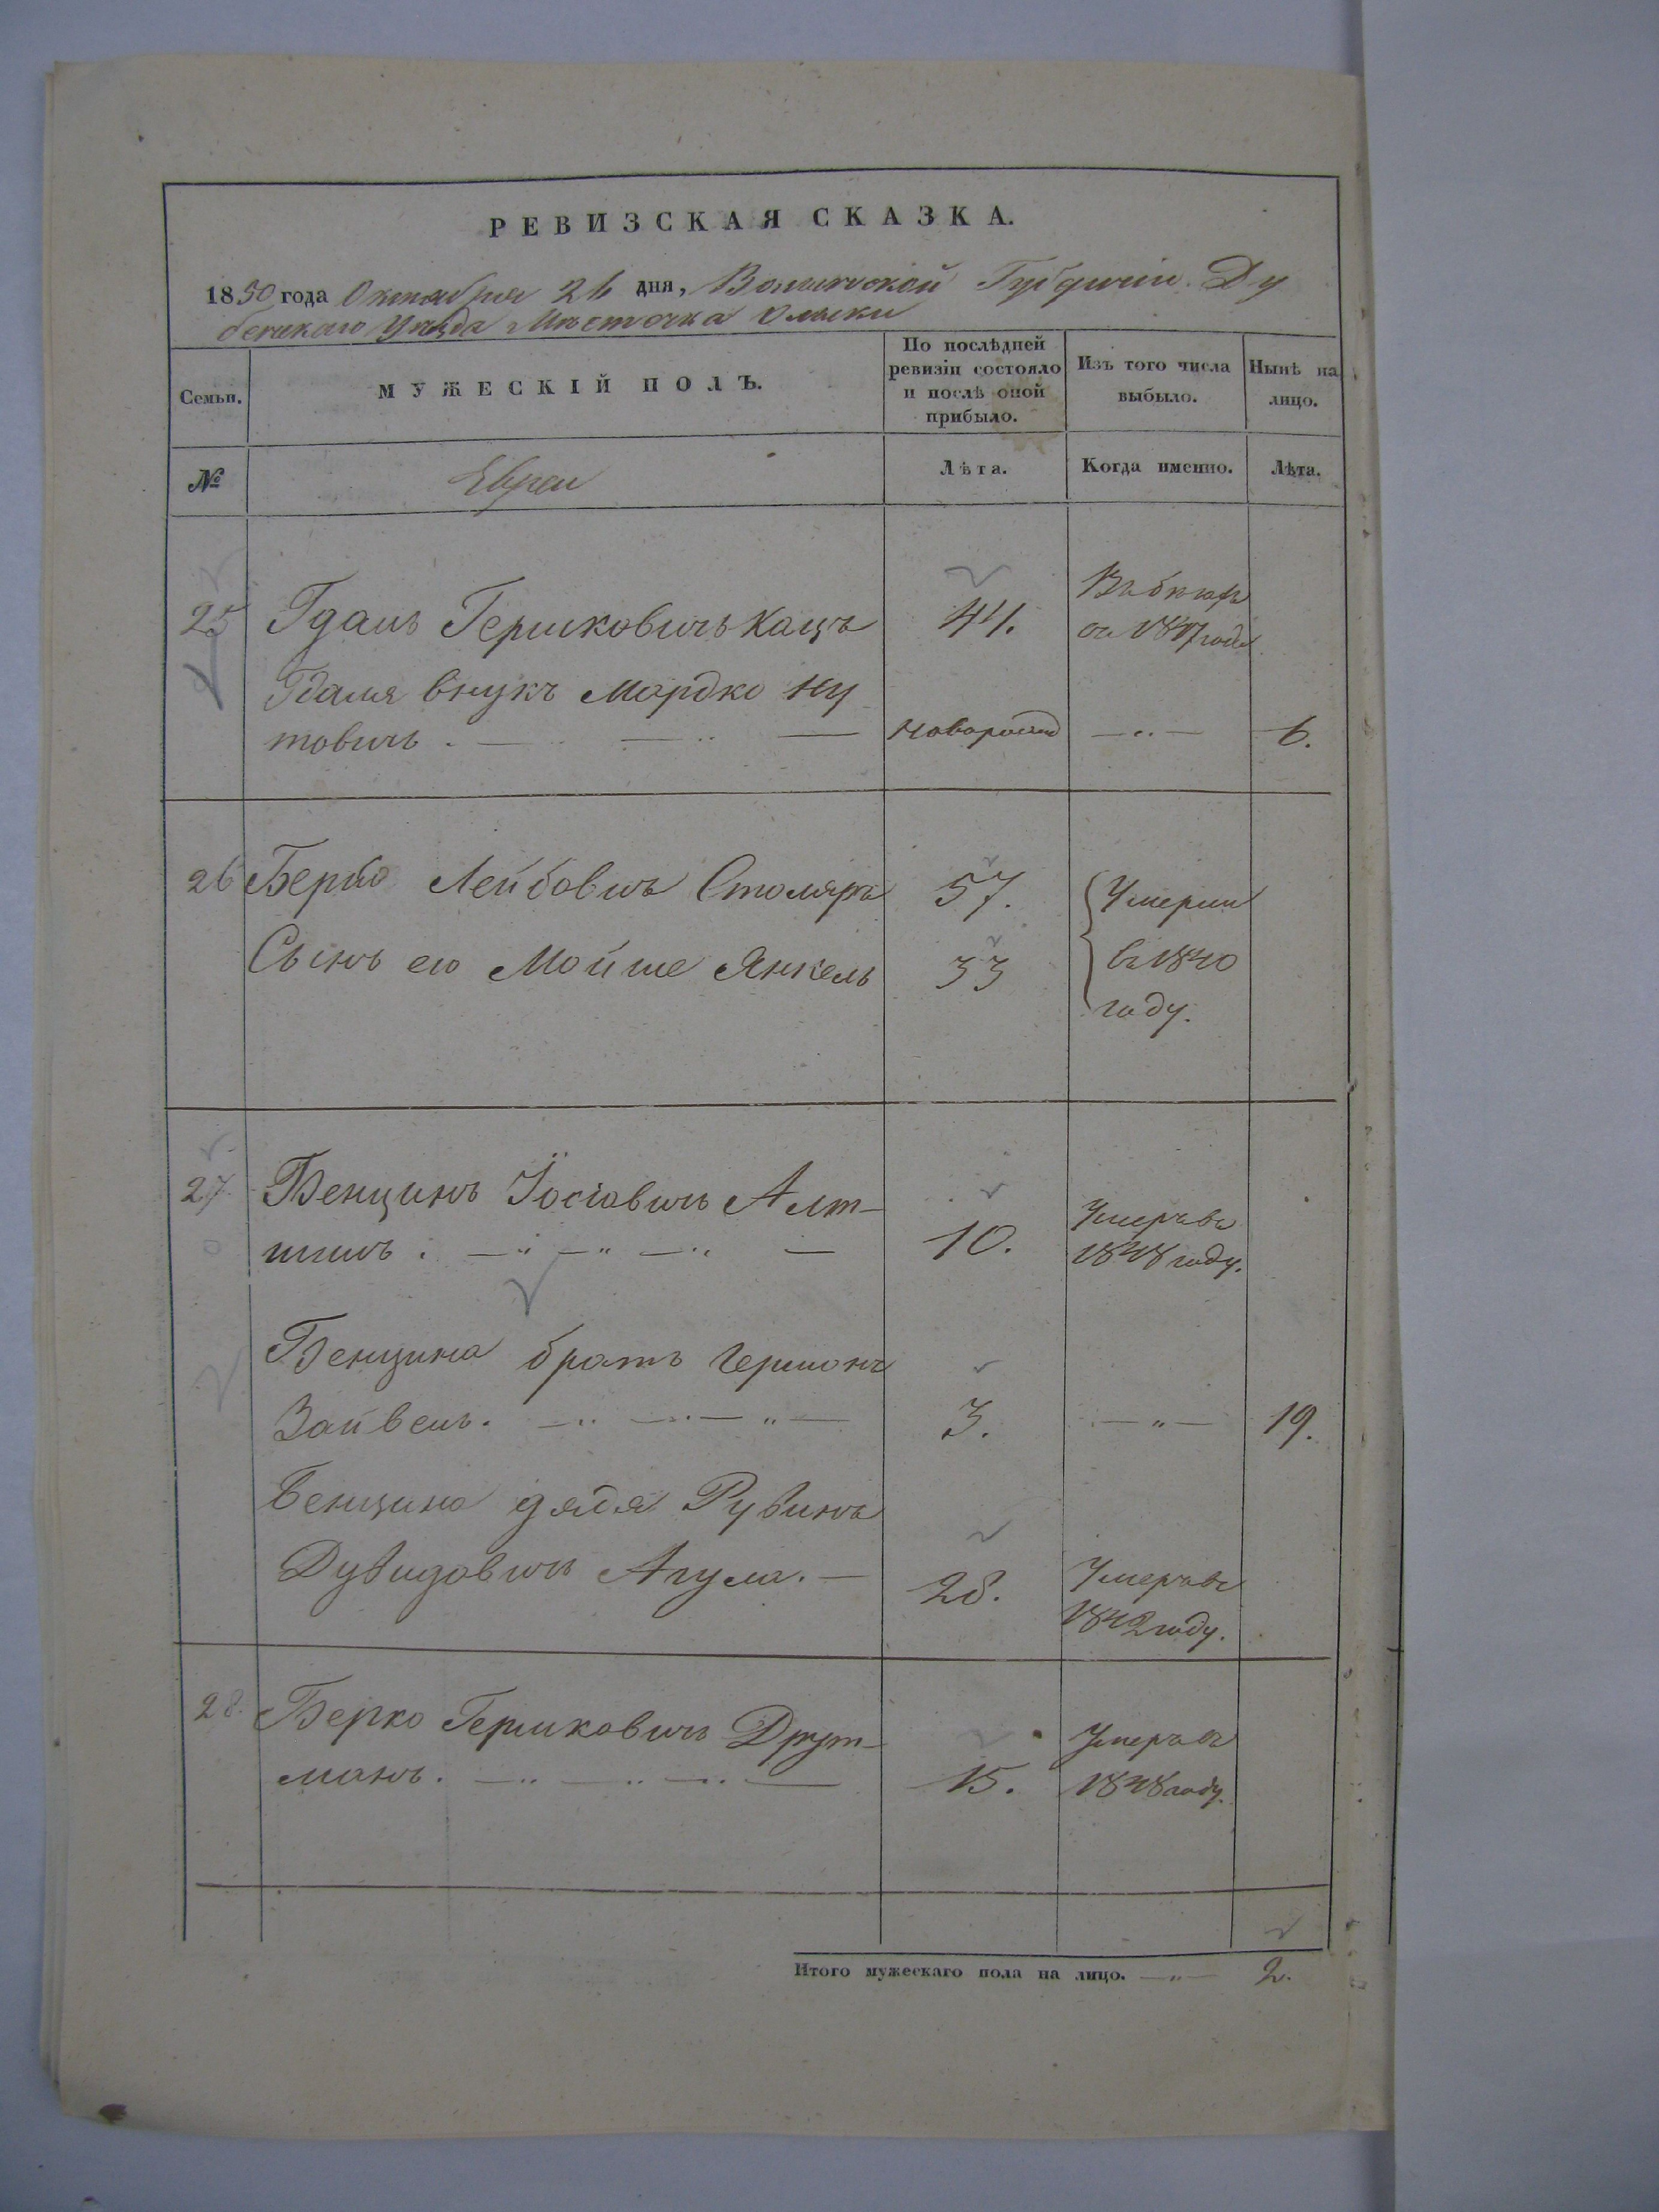 РЕВИЗСКАЯ СКАЗКА.
1850 года Октября 26 дня, Волынской Губерніи Ду
бенскаго Уѣзда Мѣстечка Олыки
Семьи.
МУЖЕСКІЙ ПОЛЪ.
По послѣдней
ревизіи состояло
и послѣ оной
прибыло.
Изъ того числа
выбыло.
Нынѣ на
лицо.
№
Евреи
Лѣта.
Когда именно.
Лѣта.
25 Гдаль Гершковичъ Кацъ 44.
Въ бѣгахъ
съ 1847 года
Гдаля внукъ Мордко Ну
товичъ. новорожд 6.
26 Берко Лейбовичъ Столяръ 57. Умерли
Сынъ его Мойше Янкель 33 въ 1840
году.
27. Бенционъ Іосіовичъ Алт-
10. Умеръ въ
1848 году.
Бенциона братъ Гершонъ
Зайвель. 3. 19.
Бенциона дядя Рувинъ
Дувидовичъ 28. Умеръ въ
1842 году.
28. Берко Гершковичъ Друт-
манъ. 15. Умеръ въ
1848 году.
Итого мужескаго пола на лицо. 2.